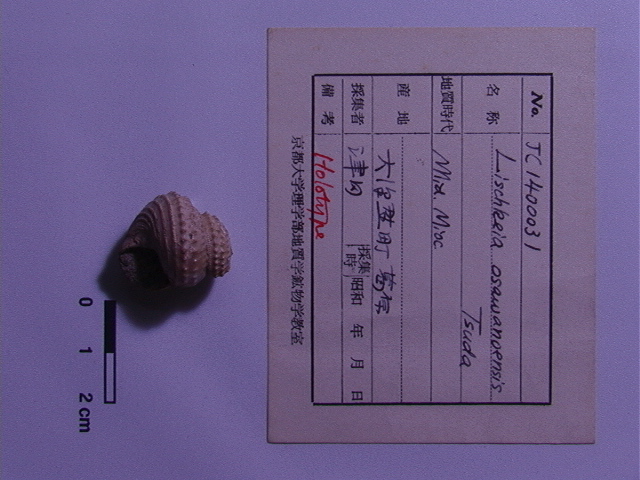 No. JC1400031
名称 Lischkeia osawanoensis
Tsuda
地質時代 Mid. Mioc
産地
大沢野町 葛原
採集者 津田 採集時 昭和 年 月 日
備考 Holotype
京都大学理学部地質学鉱物学教室
0 1 2 cm